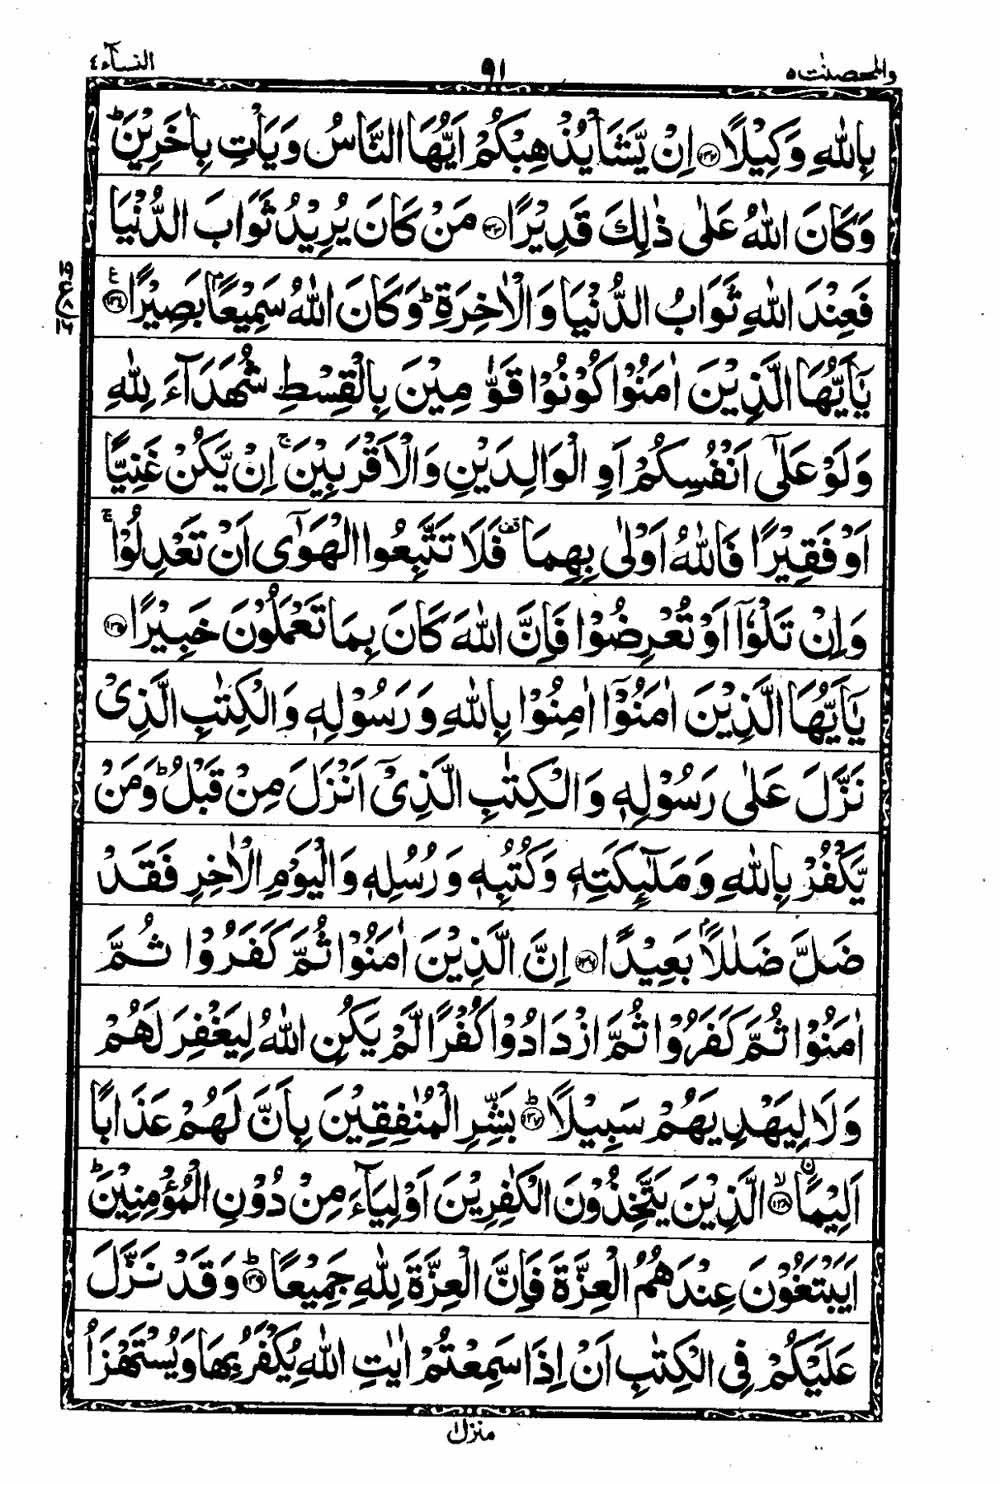 والمحصنٰت ٥ ٩١ النسآء ٤
بِاللّٰهِ وَكِيْلًا ﴿۱۳۲﴾ اِنْ يَّشَاْ يُذْهِبْكُمْ اَيُّهَا النَّاسُ وَيَاْتِ بِاٰخَرِيْنَ ؕ
وَكَانَ اللّٰهُ عَلٰى ذٰلِكَ قَدِيْرًا ﴿۱۳۳﴾ مَنْ كَانَ يُرِيْدُ ثَوَابَ الدُّنْيَا
فَعِنْدَ اللّٰهِ ثَوَابُ الدُّنْيَا وَالْاٰخِرَةِ ؕ وَكَانَ اللّٰهُ سَمِيْعًۢا بَصِيْرًا ﴿۱۳۴﴾ ع
يٰۤاَيُّهَا الَّذِيْنَ اٰمَنُوْا كُوْنُوْا قَوّٰمِيْنَ بِالْقِسْطِ شُهَدَآءَ لِلّٰهِ
وَلَوْ عَلٰٓى اَنْفُسِكُمْ اَوِ الْوَالِدَيْنِ وَالْاَقْرَبِيْنَ ۚ اِنْ يَّكُنْ غَنِيًّا
اَوْ فَقِيْرًا فَاللّٰهُ اَوْلٰى بِهِمَا قف فَلَا تَتَّبِعُوا الْهَوٰٓى اَنْ تَعْدِلُوْا ۚ
وَاِنْ تَلْوٗۤا اَوْ تُعْرِضُوْا فَاِنَّ اللّٰهَ كَانَ بِمَا تَعْمَلُوْنَ خَبِيْرًا ﴿۱۳۵﴾
يٰۤاَيُّهَا الَّذِيْنَ اٰمَنُوْۤا اٰمِنُوْا بِاللّٰهِ وَرَسُوْلِهٖ وَالْكِتٰبِ الَّذِىْ
نَزَّلَ عَلٰى رَسُوْلِهٖ وَالْكِتٰبِ الَّذِىْۤ اَنْزَلَ مِنْ قَبْلُ ؕ وَمَنْ
يَّكْفُرْ بِاللّٰهِ وَمَلٰٓئِكَتِهٖ وَكُتُبِهٖ وَرُسُلِهٖ وَالْيَوْمِ الْاٰخِرِ فَقَدْ
ضَلَّ ضَلٰلًاۢ بَعِيْدًا ﴿۱۳۶﴾ اِنَّ الَّذِيْنَ اٰمَنُوْا ثُمَّ كَفَرُوْا ثُمَّ
اٰمَنُوْا ثُمَّ كَفَرُوْا ثُمَّ ازْدَادُوْا كُفْرًا لَّمْ يَكُنِ اللّٰهُ لِيَغْفِرَ لَهُمْ
وَلَا لِيَهْدِيَهُمْ سَبِيْلًا ؕ ﴿۱۳۷﴾ بَشِّرِ الْمُنٰفِقِيْنَ بِاَنَّ لَهُمْ عَذَابًا
اَلِيْمَا ۙ ﴿۱۳۸﴾ ۨالَّذِيْنَ يَتَّخِذُوْنَ الْكٰفِرِيْنَ اَوْلِيَآءَ مِنْ دُوْنِ الْمُؤْمِنِيْنَ ؕ
اَيَبْتَغُوْنَ عِنْدَهُمُ الْعِزَّةَ فَاِنَّ الْعِزَّةَ لِلّٰهِ جَمِيْعًا ؕ ﴿۱۳۹﴾ وَقَدْ نَزَّلَ
عَلَيْكُمْ فِى الْكِتٰبِ اَنْ اِذَا سَمِعْتُمْ اٰيٰتِ اللّٰهِ يُكْفَرُ بِهَا وَيُسْتَهْزَاُ
منزل ١